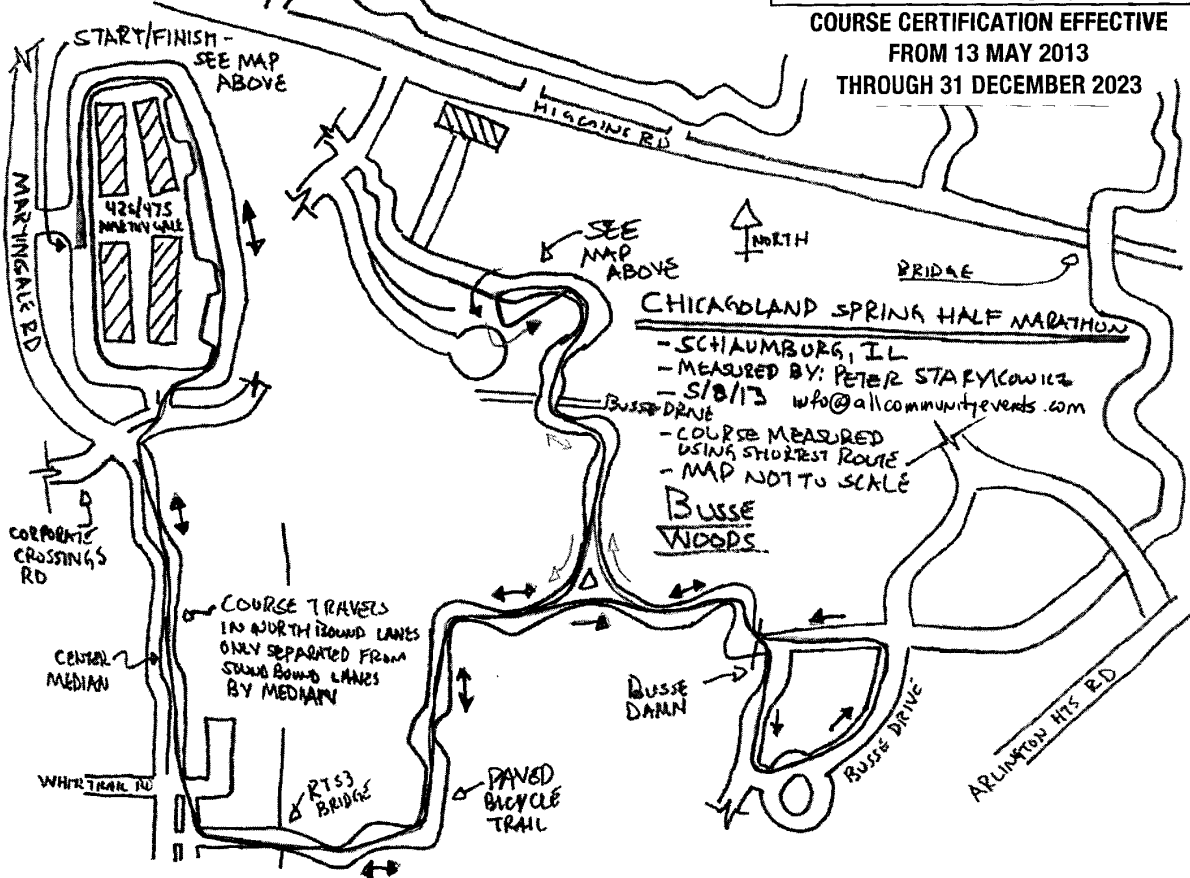 COURSE CERTIFICATION EFFECTIVE
FROM 13 MAY 2013
THROUGH 31 DECEMBER 2023
START/FINISH -
SEE MAP
ABOVE
N
HIGGINS RD
MARTINGALE RD
425/475
MARTINGALE
SEE
MAP
ABOVE
NORTH
BRIDGE
CHICAGOLAND SPRING HALF MARATHON
- SCHAUMBURG, IL
- MEASURED BY: PETER STARYKOWICZ
- 5/8/13 info@allcommunityevents.com
- COURSE MEASURED
USING SHORTEST ROUTE
- MAP NOT TO SCALE
BUSSE DRIVE
BUSSE
WOODS
CORPORATE
CROSSINGS
RD
COURSE TRAVELS
IN NORTH BOUND LANES
ONLY SEPARATED FROM
SOUND BOUND LANES
BY MEDIAN
CENTER
MEDIAN
BUSSE
DAMN
BUSSE DRIVE
ARLINGTON HTS RD
WHITE TRAIL RD
RT53
BRIDGE
PAVED
BICYCLE
TRAIL